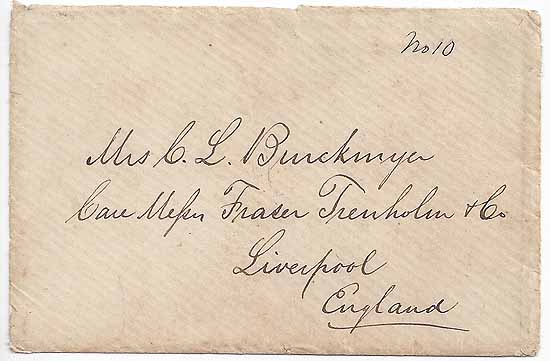 No 10
Mrs C. L. Burckmyer
Care Messrs Fraser Trenholm & Co
Liverpool
England